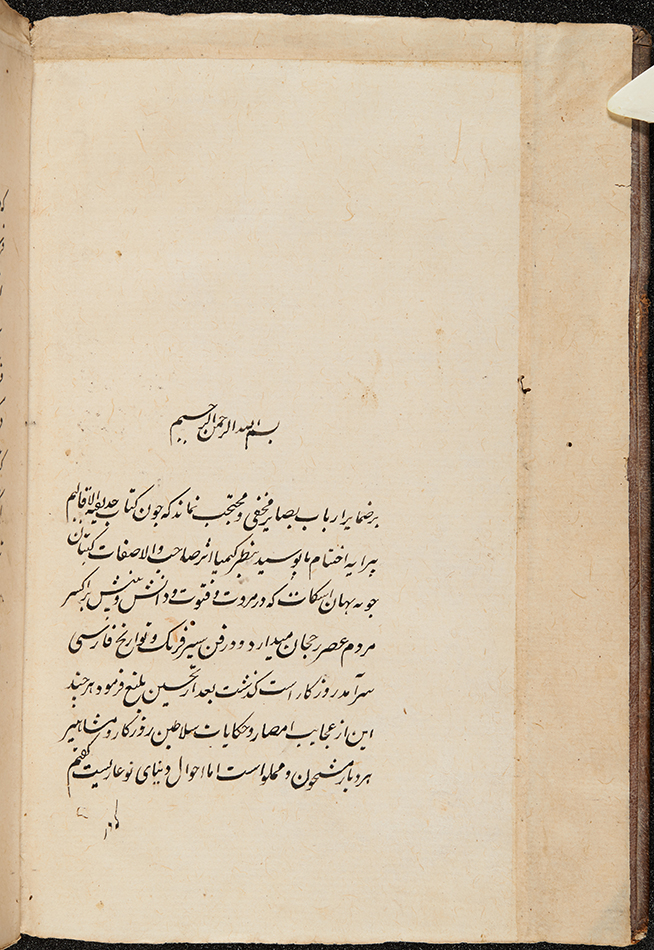 بسم الله الرحمن الرحیم
بر ضمایر ارباب بصایر مخفی و محتجب نماند که چون کتاب حدیقه الاقالیم
پیرایه اختتام پوسید بنظر کیمیا اثر صاحب والا صفات کپتان
جونه بهان اسکات که در مروت و فتوت و دانش و بینش بر اکثر
مردم عصر رجحان میدارد و در فن سیر فرنک و تواریخ فارسی
سرآمد روزکار است کذشت بعد از تحسین بلیغ فرمود هر چند
این از عجایب امصار و حکایات سلاطین روزکار و مشاهیر
هر دیار مشحون و مملو است اما احوال دنیای نو عاریست کفتم